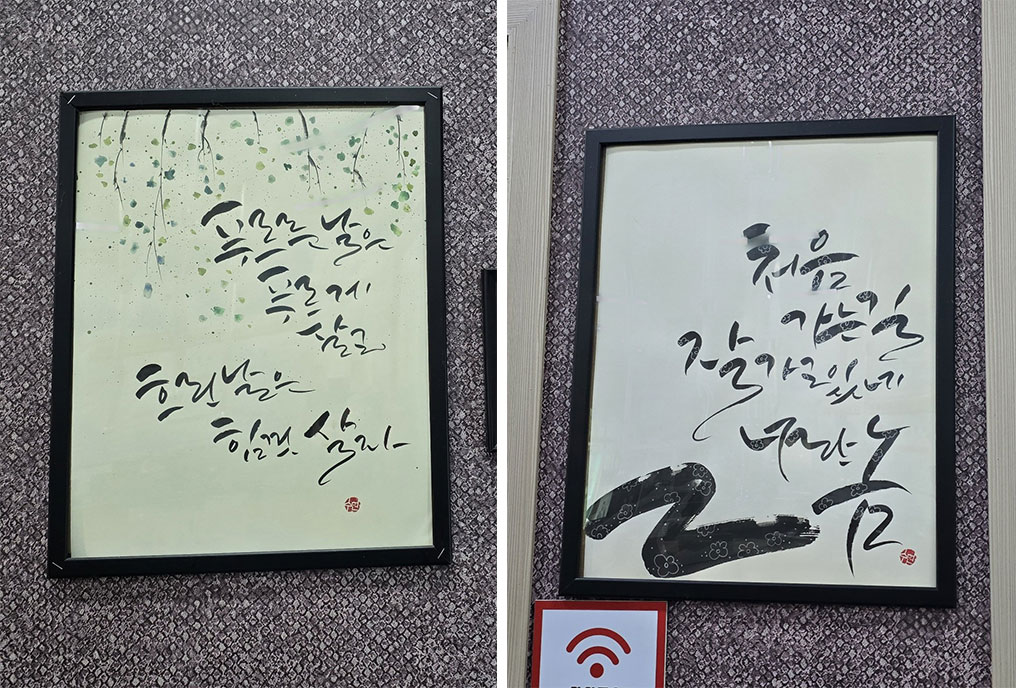 푸르른 날은
푸르게
살고
흐린 날은
힘껏 살라
처음
가는 길
잘 가고 있네
너란 놈